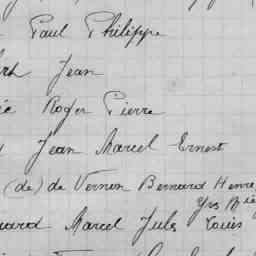 Paul Philippe
Jean
Roger Pierre
Jean Marcel Ernest
(de) de Vernon Bernard Henri
Yves
Marcel Jules Louis